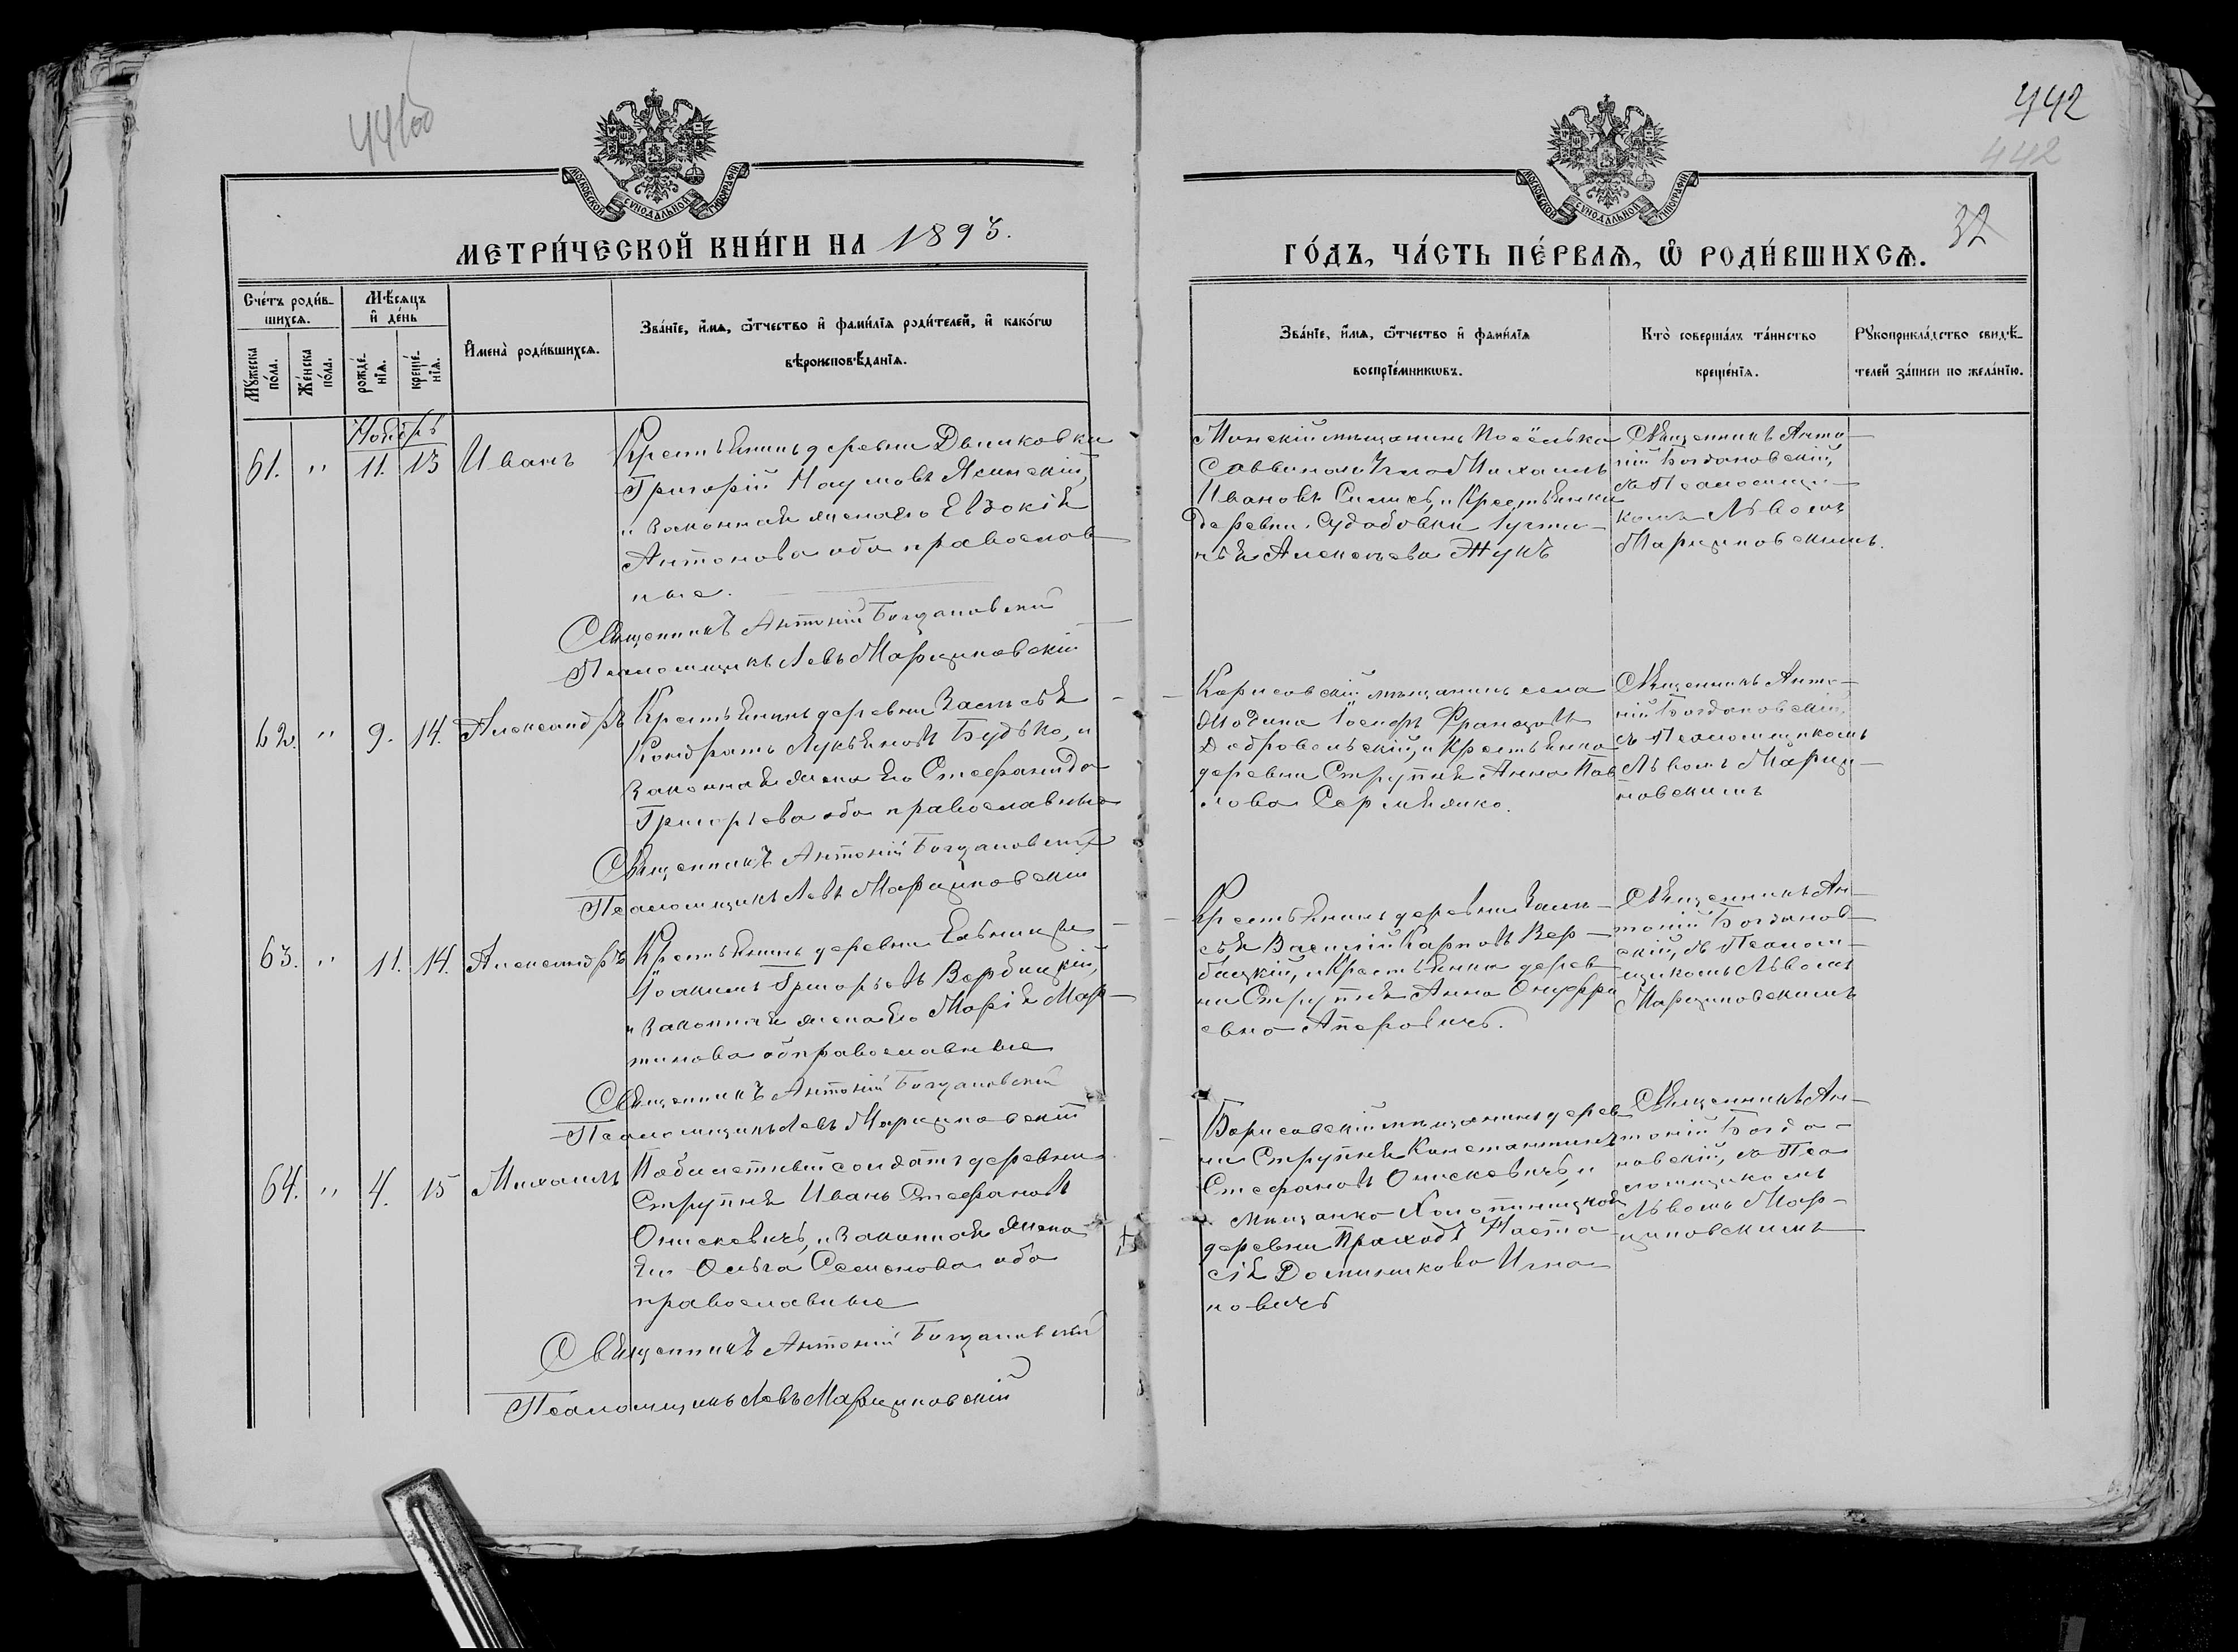 442
442
МОСКОВСКОЙ СѴНОДАЛЬНОЙ ТИПОГРАФІИ
МОСКОВСКОЙ СѴНОДАЛЬНОЙ ТИПОГРАФІИ
32
МЕТРИ́ЧЕСКОЙ КНИ́ГИ НА 1893.
ГО́ДЪ, ЧА́СТЬ ПЕ́РВАѦ, Ѡ҆ РОДИ́ВШИХСѦ.
Сче́тъ роди́в-
шихсѧ.
Мꙋжеска
по́ла.
Же́нска
по́ла.
Мѣ́сѧцъ
и҆ де́нь
рожде́-
нїѧ.
креще́-
нїѧ.
И҆мена̀ роди́вшихсѧ.
Зва́нїе, и҆́мѧ, ѻ҆́тчество и҆ фами́лїѧ роди́телей, и҆ како́гѡ
вѣроисповѣ́данїѧ.
Зва́нїе, и҆́мѧ, ѻ҆́тчество и҆ фами́лїѧ
воспрїе́мникѡвъ.
Кто̀ соверша́лъ та́инство
креще́нїѧ.
Рꙋкоприкла́дство свидѣ́-
телей за́писи по жела́нїю.
Ноябрь
61. " 11. 13 Иванъ
Крестьянинъ деревни
Григорій Наумовъ Ясинскій,
и законная жена его Евдокія
Антонова оба православ
ные.
Священникъ Антоній Богдановскій
Псаломщикъ Левъ Марциновскій
Минскій мѣщанинъ посёлка
Михаилъ
Ивановъ и Крестьянка
деревни Судобовки Іусти-
нья Алексѣева Жукъ
Священникъ Анто-
ній Богдановскій,
съ Псаломщи-
комъ Львомъ
Марциновскимъ.
62. " 9. 14. Александръ
Крестьянинъ деревни Залѣсья
Кондратъ Лукьяновъ Будько, и
законная жена его Стефанида
Григорьева оба православные
Священникъ Антоній Богдановскій
Псаломщикъ Левъ Марциновскій
мѣщанинъ села
Жодина Іосифъ Францовъ
Добровольскій, и Крестьянка
деревни Струпня Анна Пав
лова
Священникъ Анто-
ній Богдановскій,
съ Псаломщикомъ
Львомъ Марци-
новскимъ
63. " 11. 14. Александръ
Крестьянинъ деревни Ельница
Іоакимъ Григорьевъ Вербицкій,
и законная жена его Марія Мар-
тинова оба православные
Священникъ Антоній Богдановскій
Псаломщикъ Левъ Марциновскій
Крестьянинъ деревни Залѣ-
сья Василій Карповъ Вер-
бицкій, и Крестьянка дерев-
ни Струпня Анна Онуфрі
евна
Священникъ Ан-
тоній Богданов-
скій, съ Псалом-
щикомъ Львомъ
Марциновскимъ
64. " 4. 15 Михаилъ
солдатъ деревни
Струпня Иванъ Стефановъ
Онискевичъ, и законная жена
его Ольга Семенова оба
православные
Священникъ Антоній Богдановскій
Псаломщикъ Левъ Марциновскій
Борисовскій мѣщанинъ дерев
ни Струпня Константинъ
Стефановъ Онискевичъ, и
Мѣщанка
деревни Наста
сія Доминикова Игна
новичъ
Священникъ Ан-
тоній Богда-
новскій, съ Пса
ломщикомъ
Львомъ Мар-
циновскимъ